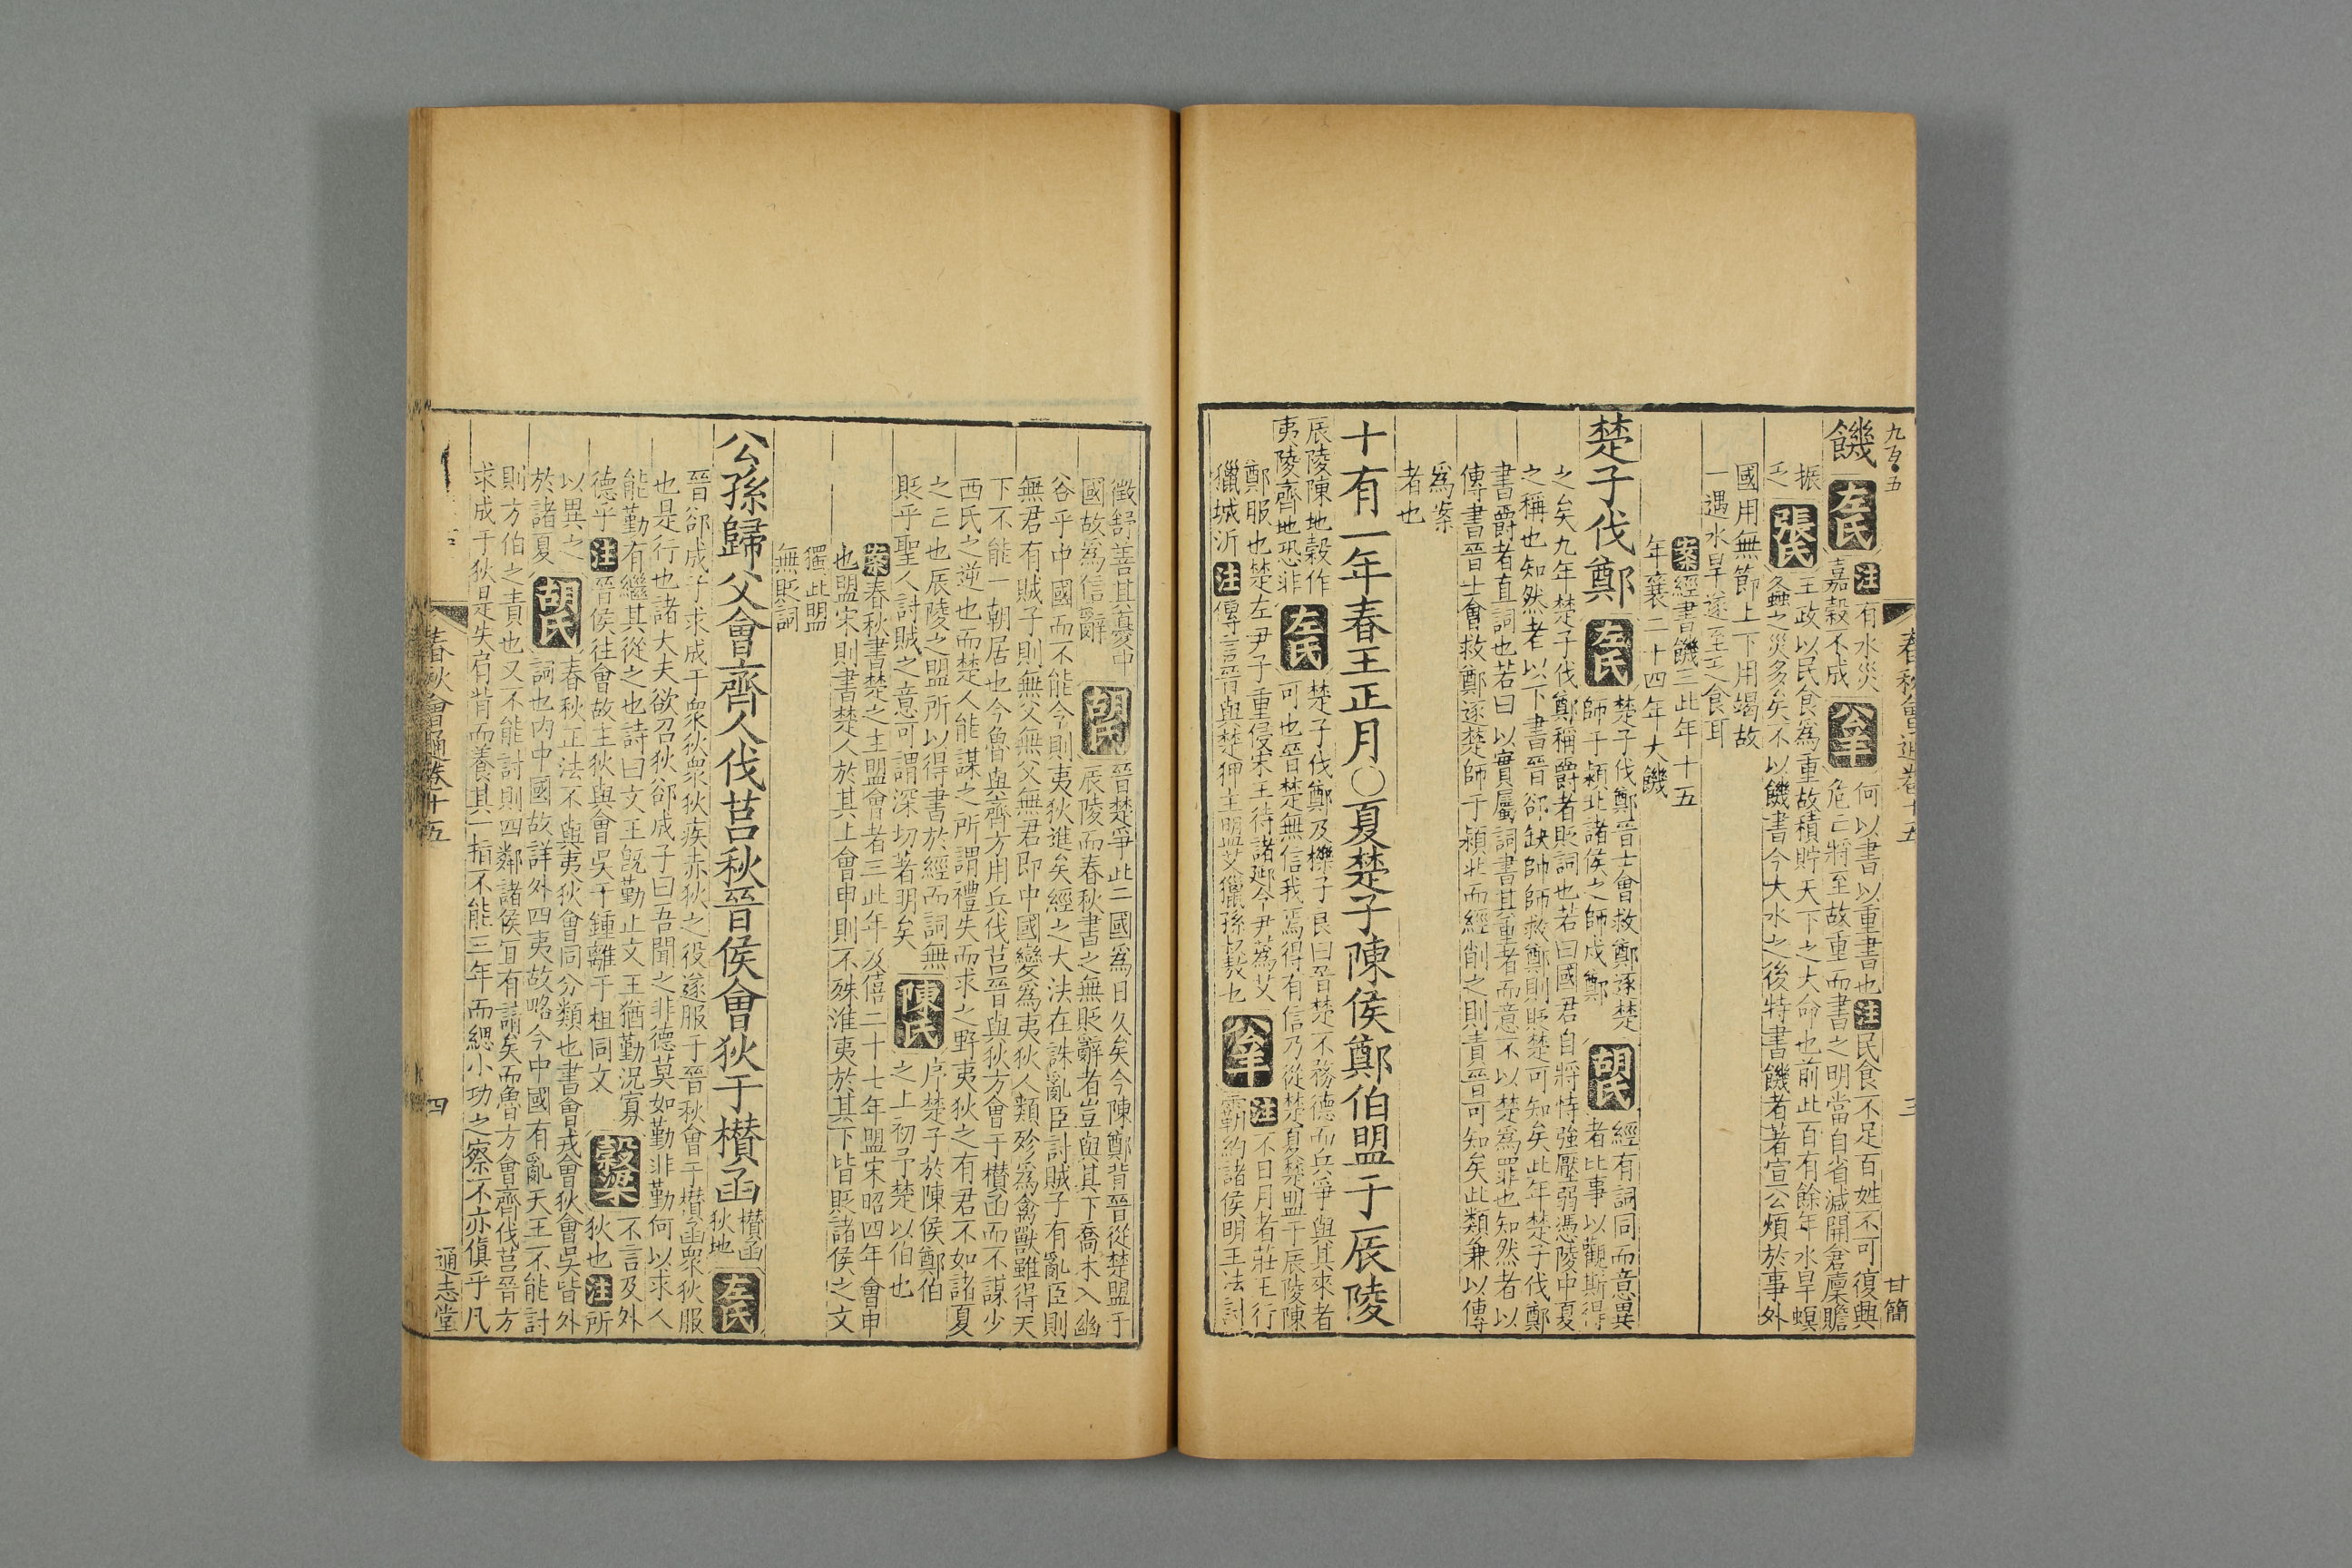 九百五
春秋會通卷十五
三
甘簡
饑
左氏
注
有水災
嘉穀不成
公羊
何以書以重書也
注
民食不足百姓不可復興
危亡將至故重而書之明當自省減開倉廩贍
振
乏
張氏
王政以民食爲重故積貯天下之大命也前此百有餘年水旱螟
螽之災多矣不以饑書今大水之後特書饑者著宣公煩於事外
國用無節上下用竭故
一遇水旱遂至乏食耳
案
經書饑三此年十五
年襄二十四年大饑
楚子伐鄭
左氏
楚子伐鄭晉士會救鄭逐楚
師于潁北諸侯之師戍鄭
胡氏
經有詞同而意異
者比事以觀斯得
之矣九年楚子伐鄭稱爵者貶詞也若曰國君自將恃強壓弱憑陵中夏
之稱也知然者以下書晉郤缺帥師救鄭則貶楚可知矣此年楚子伐鄭
書爵者直詞也若曰以實屬詞書其重者而意不以楚爲罪也知然者以
傳書晉士會救鄭逐楚師于潁北而經削之則責晉可知矣此類兼以傳
爲案
者也
十有一年春王正月〇夏楚子陳侯鄭伯盟于辰陵
辰陵陳地穀作
夷陵齊地恐非
左氏
楚子伐鄭及櫟子良曰晉楚不務德而兵爭與其來者
可也晉楚無信我焉得有信乃從楚夏楚盟于辰陵陳
鄭服也楚左尹子重侵宋王待諸郔令尹蔿艾
獵城沂
注
傳言晉與楚狎主盟艾獵孫叔敖也
公羊
注
不日月者莊王行
霸約諸侯明王法討
徵舒善其憂中
國故爲信辭
胡氏
晉楚爭此二國爲日久矣今陳鄭背晉從楚盟于
辰陵而春秋書之無貶辭者豈與其下喬木入幽
谷乎中國而不能令則夷狄進矣經之大法在誅亂臣討賊子有亂臣則
無君有賊子則無父無父無君即中國變爲夷狄人類殄爲禽獸雖得天
下不能一朝居也今魯與齊方用兵伐莒晉與狄方會于欑函而不謀少
西氏之逆也而楚人能謀之所謂禮失而求之野夷狄之有君不如諸夏
之亡也辰陵之盟所以得書於經而詞無
貶乎聖人討賊之意可謂深切著明矣
陳氏
序楚子於陳侯鄭伯
之上初予楚以伯也
案
春秋書楚之主盟會者三此年及僖二十七年盟宋昭四年會申
也盟宋則書楚人於其上會申則不殊淮夷於其下皆貶諸侯之文
獨此盟
無貶詞
公孫歸父會齊人伐莒秋晉侯會狄于欑函
欑函
狄地
左氏
晉郤成子求成于衆狄衆狄疾赤狄之役遂服于晉秋會于欑函衆狄服
也是行也諸大夫欲召狄郤成子曰吾聞之非德莫如勤非勤何以求人
能勤有繼其從之也詩曰文王旣勤止文王猶勤況寡
德乎
注
晉侯往會故主狄與會吳于鍾離于柤同文
穀梁
不言及外
狄也
注
所
以異之
於諸夏
胡氏
春秋正法不與夷狄會同分類也書會戎會狄會吳皆外
詞也内中國故詳外四夷故略今中國有亂天王不能討
則方伯之責也又不能討則四鄰諸侯宜有請矣而魯方會齊伐莒晉方
求成于狄是失肩背而養其一指不能三年而緦小功之察不亦傎乎凡
春秋會通卷十五
四
通志堂